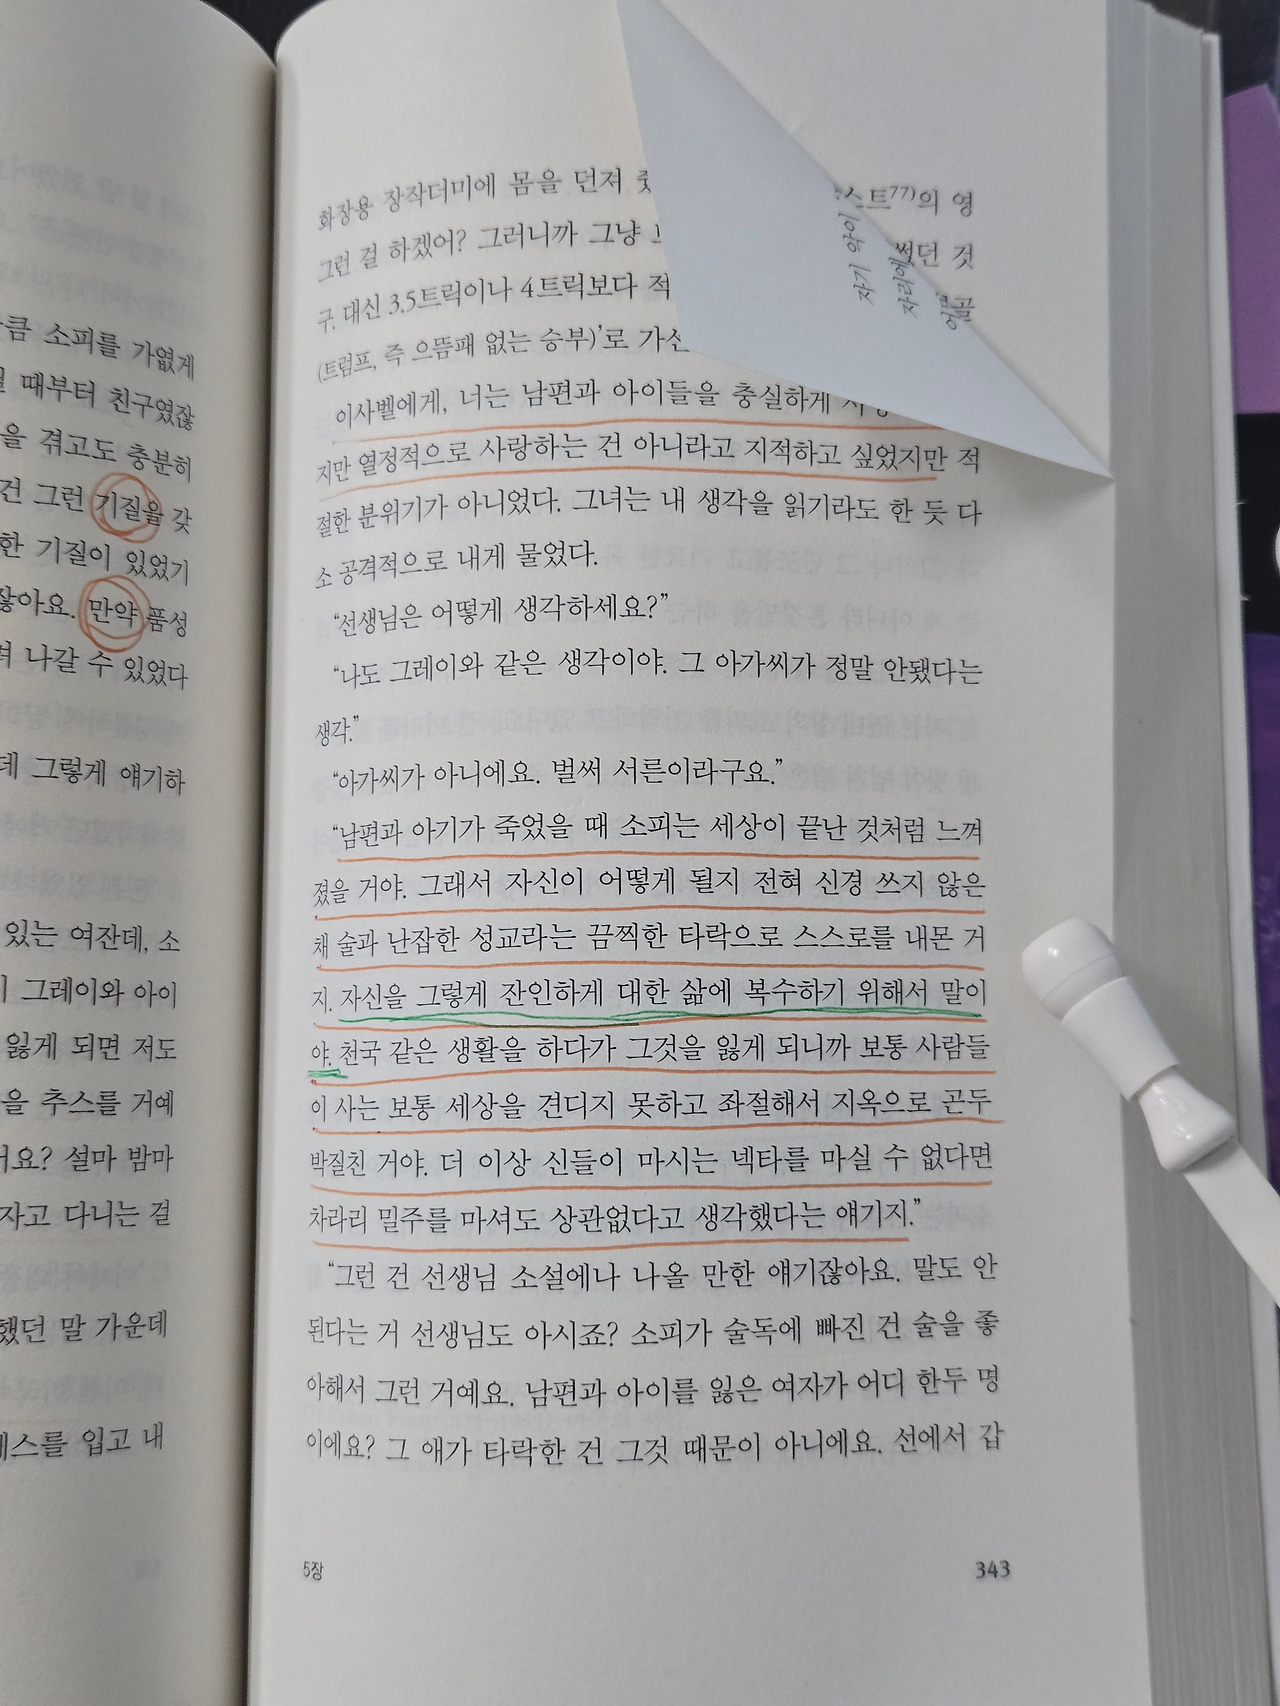 큼 소피를 가엾게
때부터 친구였잖
을 겪고도 충분히
건 그런 기질을 갖
한 기질이 있었기
잖아요. 만약 품성
려 나갈 수 있었다
데 그렇게 얘기하
있는 여잔데, 소
그레이와 아이
잃게 되면 저도
을 추스를 거예
어요? 설마 밤마
자고 다니는 걸
했던 말 가운데
레스를 입고 내
화장용 장작더미에 몸을 던져
스트77)의 영
그런 걸 하겠어? 그러니까 그냥
썼던 것
구. 대신 3.5트릭이나 4트릭보다 적
골
(트럼프, 즉 으뜸패 없는 승부)’로
자기 아이
자리에
이사벨에게, 너는 남편과 아이들을 충실하게
지만 열정적으로 사랑하는 건 아니라고 지적하고 싶었지만 적
절한 분위기가 아니었다. 그녀는 내 생각을 읽기라도 한 듯 다
소 공격적으로 내게 물었다.
“선생님은 어떻게 생각하세요?”
“나도 그레이와 같은 생각이야. 그 아가씨가 정말 안됐다는
생각.”
“아가씨가 아니에요. 벌써 서른이라구요.”
“남편과 아기가 죽었을 때 소피는 세상이 끝난 것처럼 느껴
졌을 거야. 그래서 자신이 어떻게 될지 전혀 신경 쓰지 않은
채 술과 난잡한 성교라는 끔찍한 타락으로 스스로를 내몬 거
지. 자신을 그렇게 잔인하게 대한 삶에 복수하기 위해서 말이
야. 천국 같은 생활을 하다가 그것을 잃게 되니까 보통 사람들
이 사는 보통 세상을 견디지 못하고 좌절해서 지옥으로 곤두
박질친 거야. 더 이상 신들이 마시는 넥타를 마실 수 없다면
차라리 밀주를 마셔도 상관없다고 생각했다는 얘기지.”
“그런 건 선생님 소설에나 나올 만한 얘기잖아요. 말도 안
된다는 거 선생님도 아시죠? 소피가 술독에 빠진 건 술을 좋
아해서 그런 거예요. 남편과 아이를 잃은 여자가 어디 한두 명
이에요? 그 애가 타락한 건 그것 때문이 아니에요. 선에서 갑
5장
343